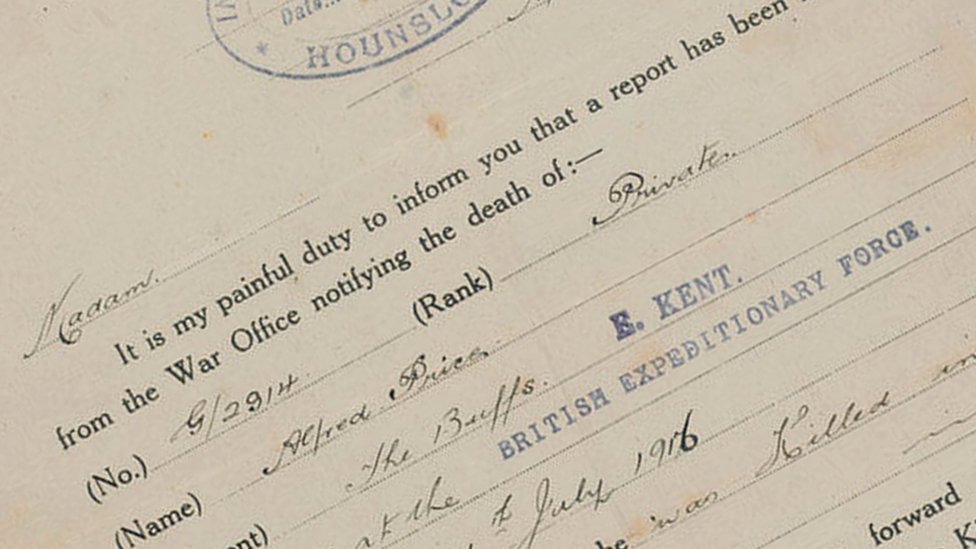 Date...
HOUNSLO
Madam.
It is my painful duty to inform you that a report has been
from the War Office notifying the death of:—
(No.) G/2914. (Rank) Private.
(Name) Alfred Price.
The Buffs. E. KENT.
at the BRITISH EXPEDITIONARY FORCE.
July 1916
was Killed in
forward